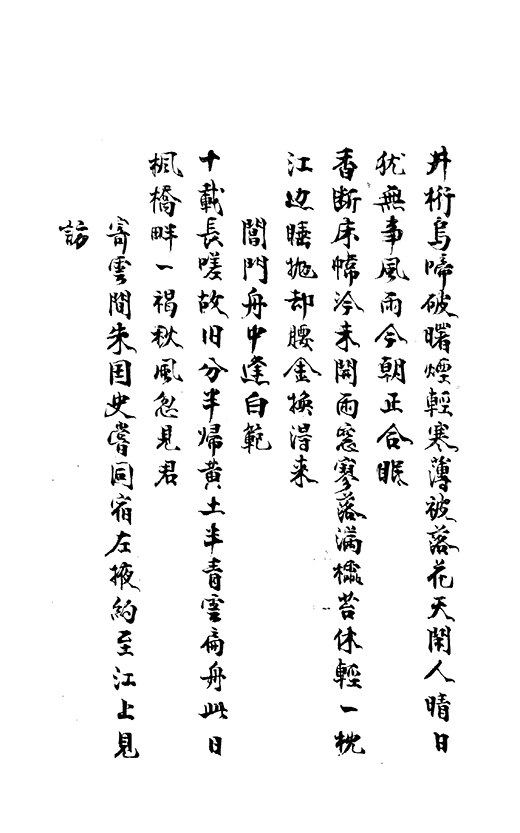 井桁烏啼破曙煙輕寒薄被落花天閑人晴日
犹無事風雨今朝正合眠
香断床幃冷未開雨窓寥落满櫺苔休輕一枕
江边睡抛却腰金換淂来
閶門舟中逢白範
十載長嗟故旧分半歸黄土半青雲扁舟此日
楓橋畔一褐秋風忽見君
寄雲間朱国史嘗同宿左掖約至江上見
訪